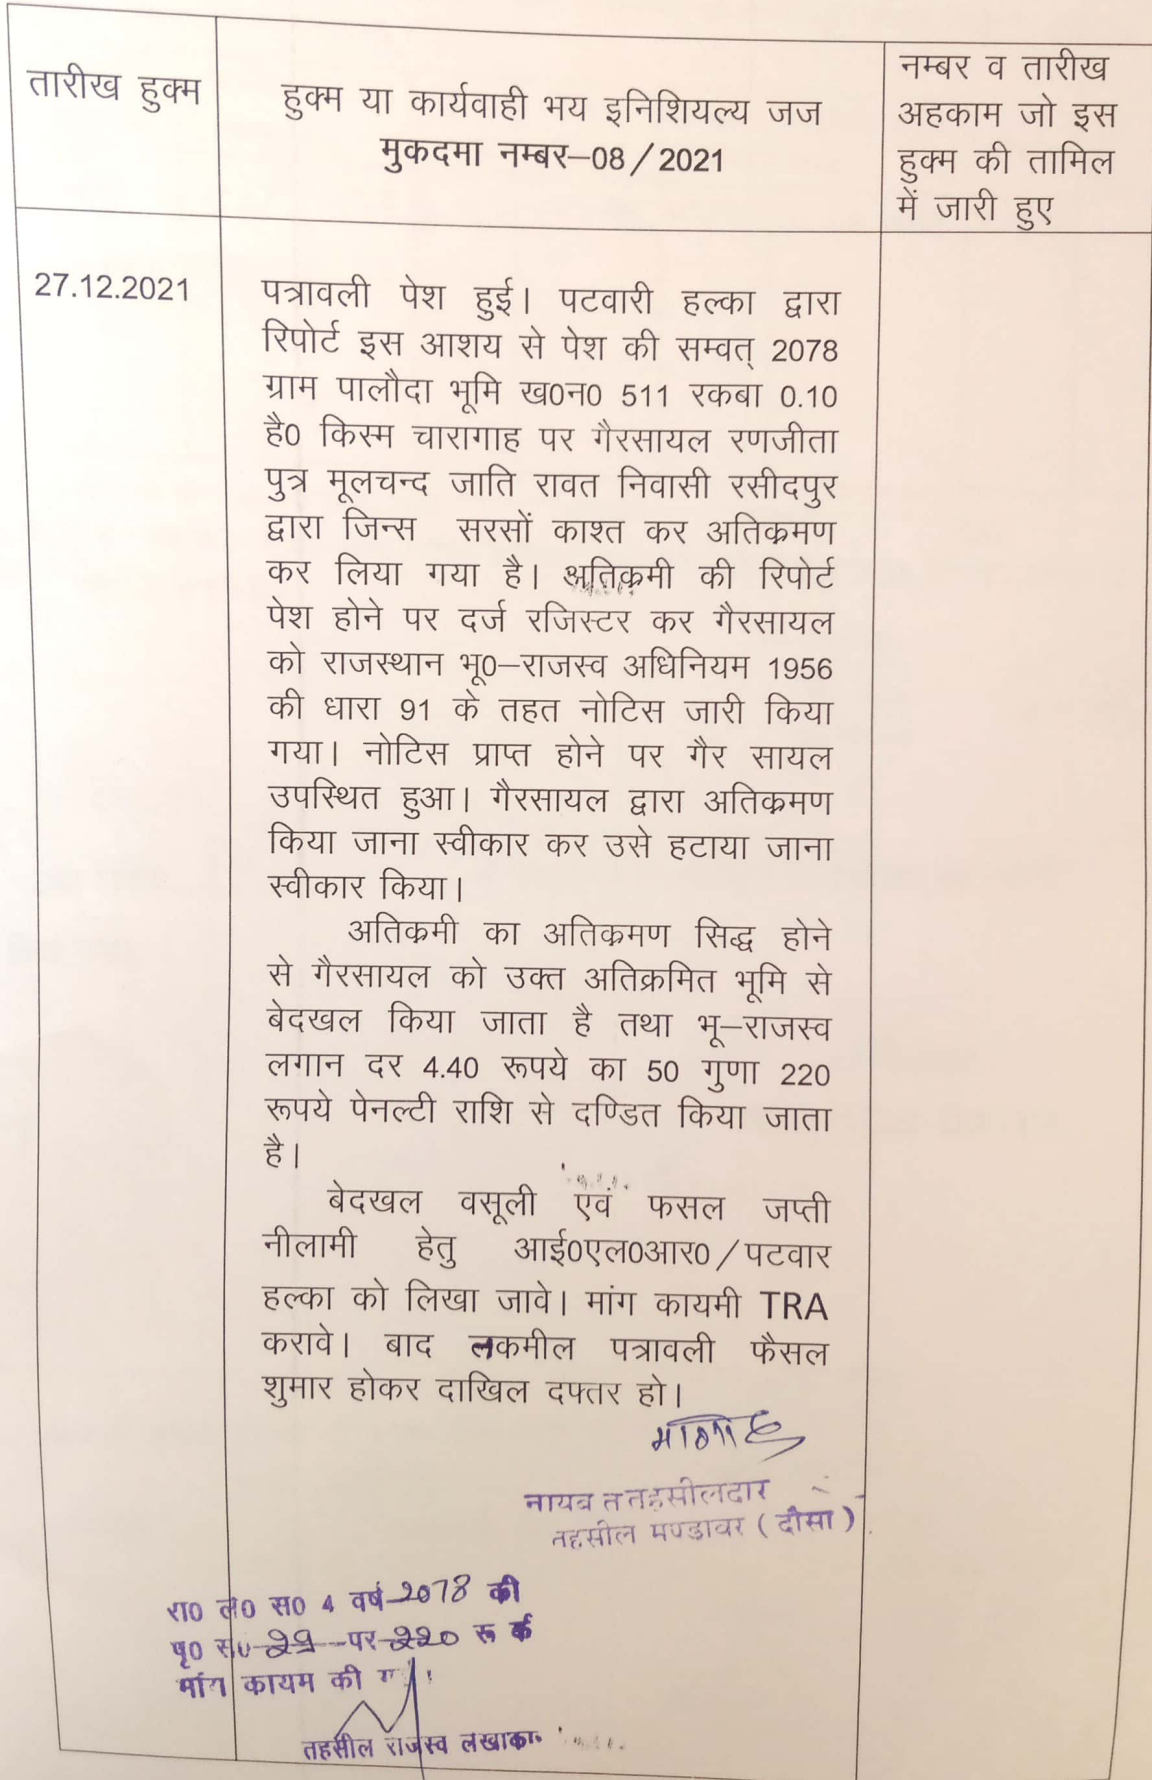 तारीख हुक्म
हुक्म या कार्यवाही भय इनिशियल्य जज
मुकदमा नम्बर–08/2021
नम्बर व तारीख
अहकाम जो इस
हुक्म की तामिल
में जारी हुए
27.12.2021
पत्रावली पेश हुई। पटवारी हल्का द्वारा
रिपोर्ट इस आशय से पेश की सम्वत् 2078
ग्राम पालौदा भूमि ख0न0 511 रकबा 0.10
है0 किस्म चारागाह पर गैरसायल रणजीता
पुत्र मूलचन्द जाति रावत निवासी रसीदपुर
द्वारा जिन्स सरसों काश्त कर अतिक्रमण
कर लिया गया है। अतिक्रमी की रिपोर्ट
पेश होने पर दर्ज रजिस्टर कर गैरसायल
को राजस्थान भू0–राजस्व अधिनियम 1956
की धारा 91 के तहत नोटिस जारी किया
गया। नोटिस प्राप्त होने पर गैर सायल
उपस्थित हुआ। गैरसायल द्वारा अतिक्रमण
किया जाना स्वीकार कर उसे हटाया जाना
स्वीकार किया।
अतिक्रमी का अतिक्रमण सिद्ध होने
से गैरसायल को उक्त अतिक्रमित भूमि से
बेदखल किया जाता है तथा भू–राजस्व
लगान दर 4.40 रूपये का 50 गुणा 220
रूपये पेनल्टी राशि से दण्डित किया जाता
है।
बेदखल वसूली एवं फसल जप्ती
नीलामी हेतु आई0एल0आर0/पटवार
हल्का को लिखा जावे। मांग कायमी TRA
करावे। बाद तकमील पत्रावली फैसल
शुमार होकर दाखिल दफ्तर हो।
नायब त तहसीलदार
तहसील मण्डावर (दौसा)
रा0 ले0 स0 4 वर्ष 2078 की
पृ0 स0 29 पर 220 रू की
मांग कायम की
तहसील राजस्व लेखाकार